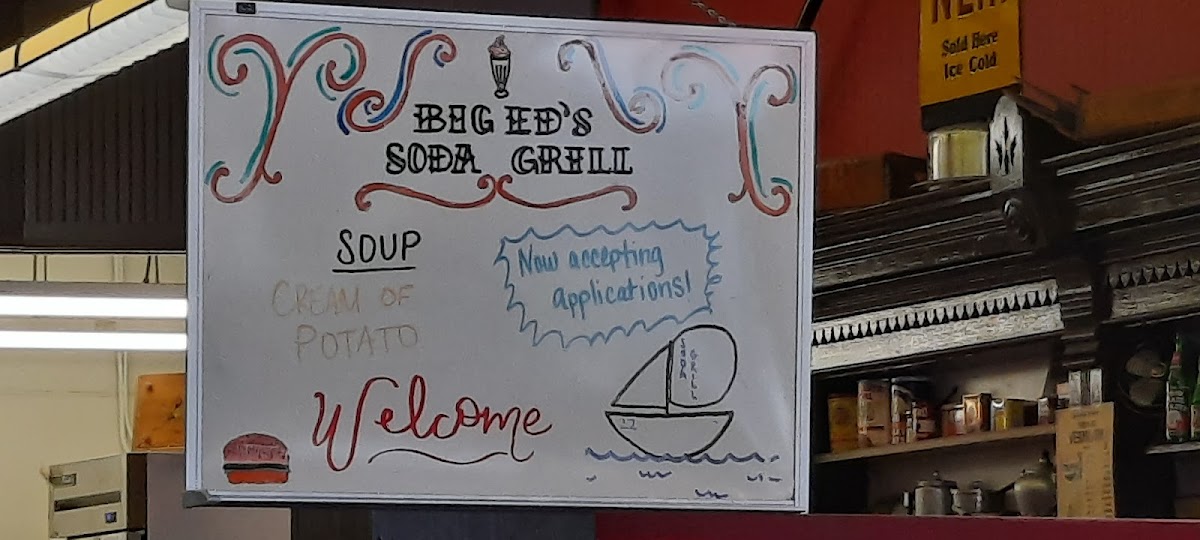 BIG ED'S
SODA GRILL
SOUP
CREAM OF
POTATO
Now accepting
applications!
Welcome
SODA
GRILL
Sold Here
Ice Cold